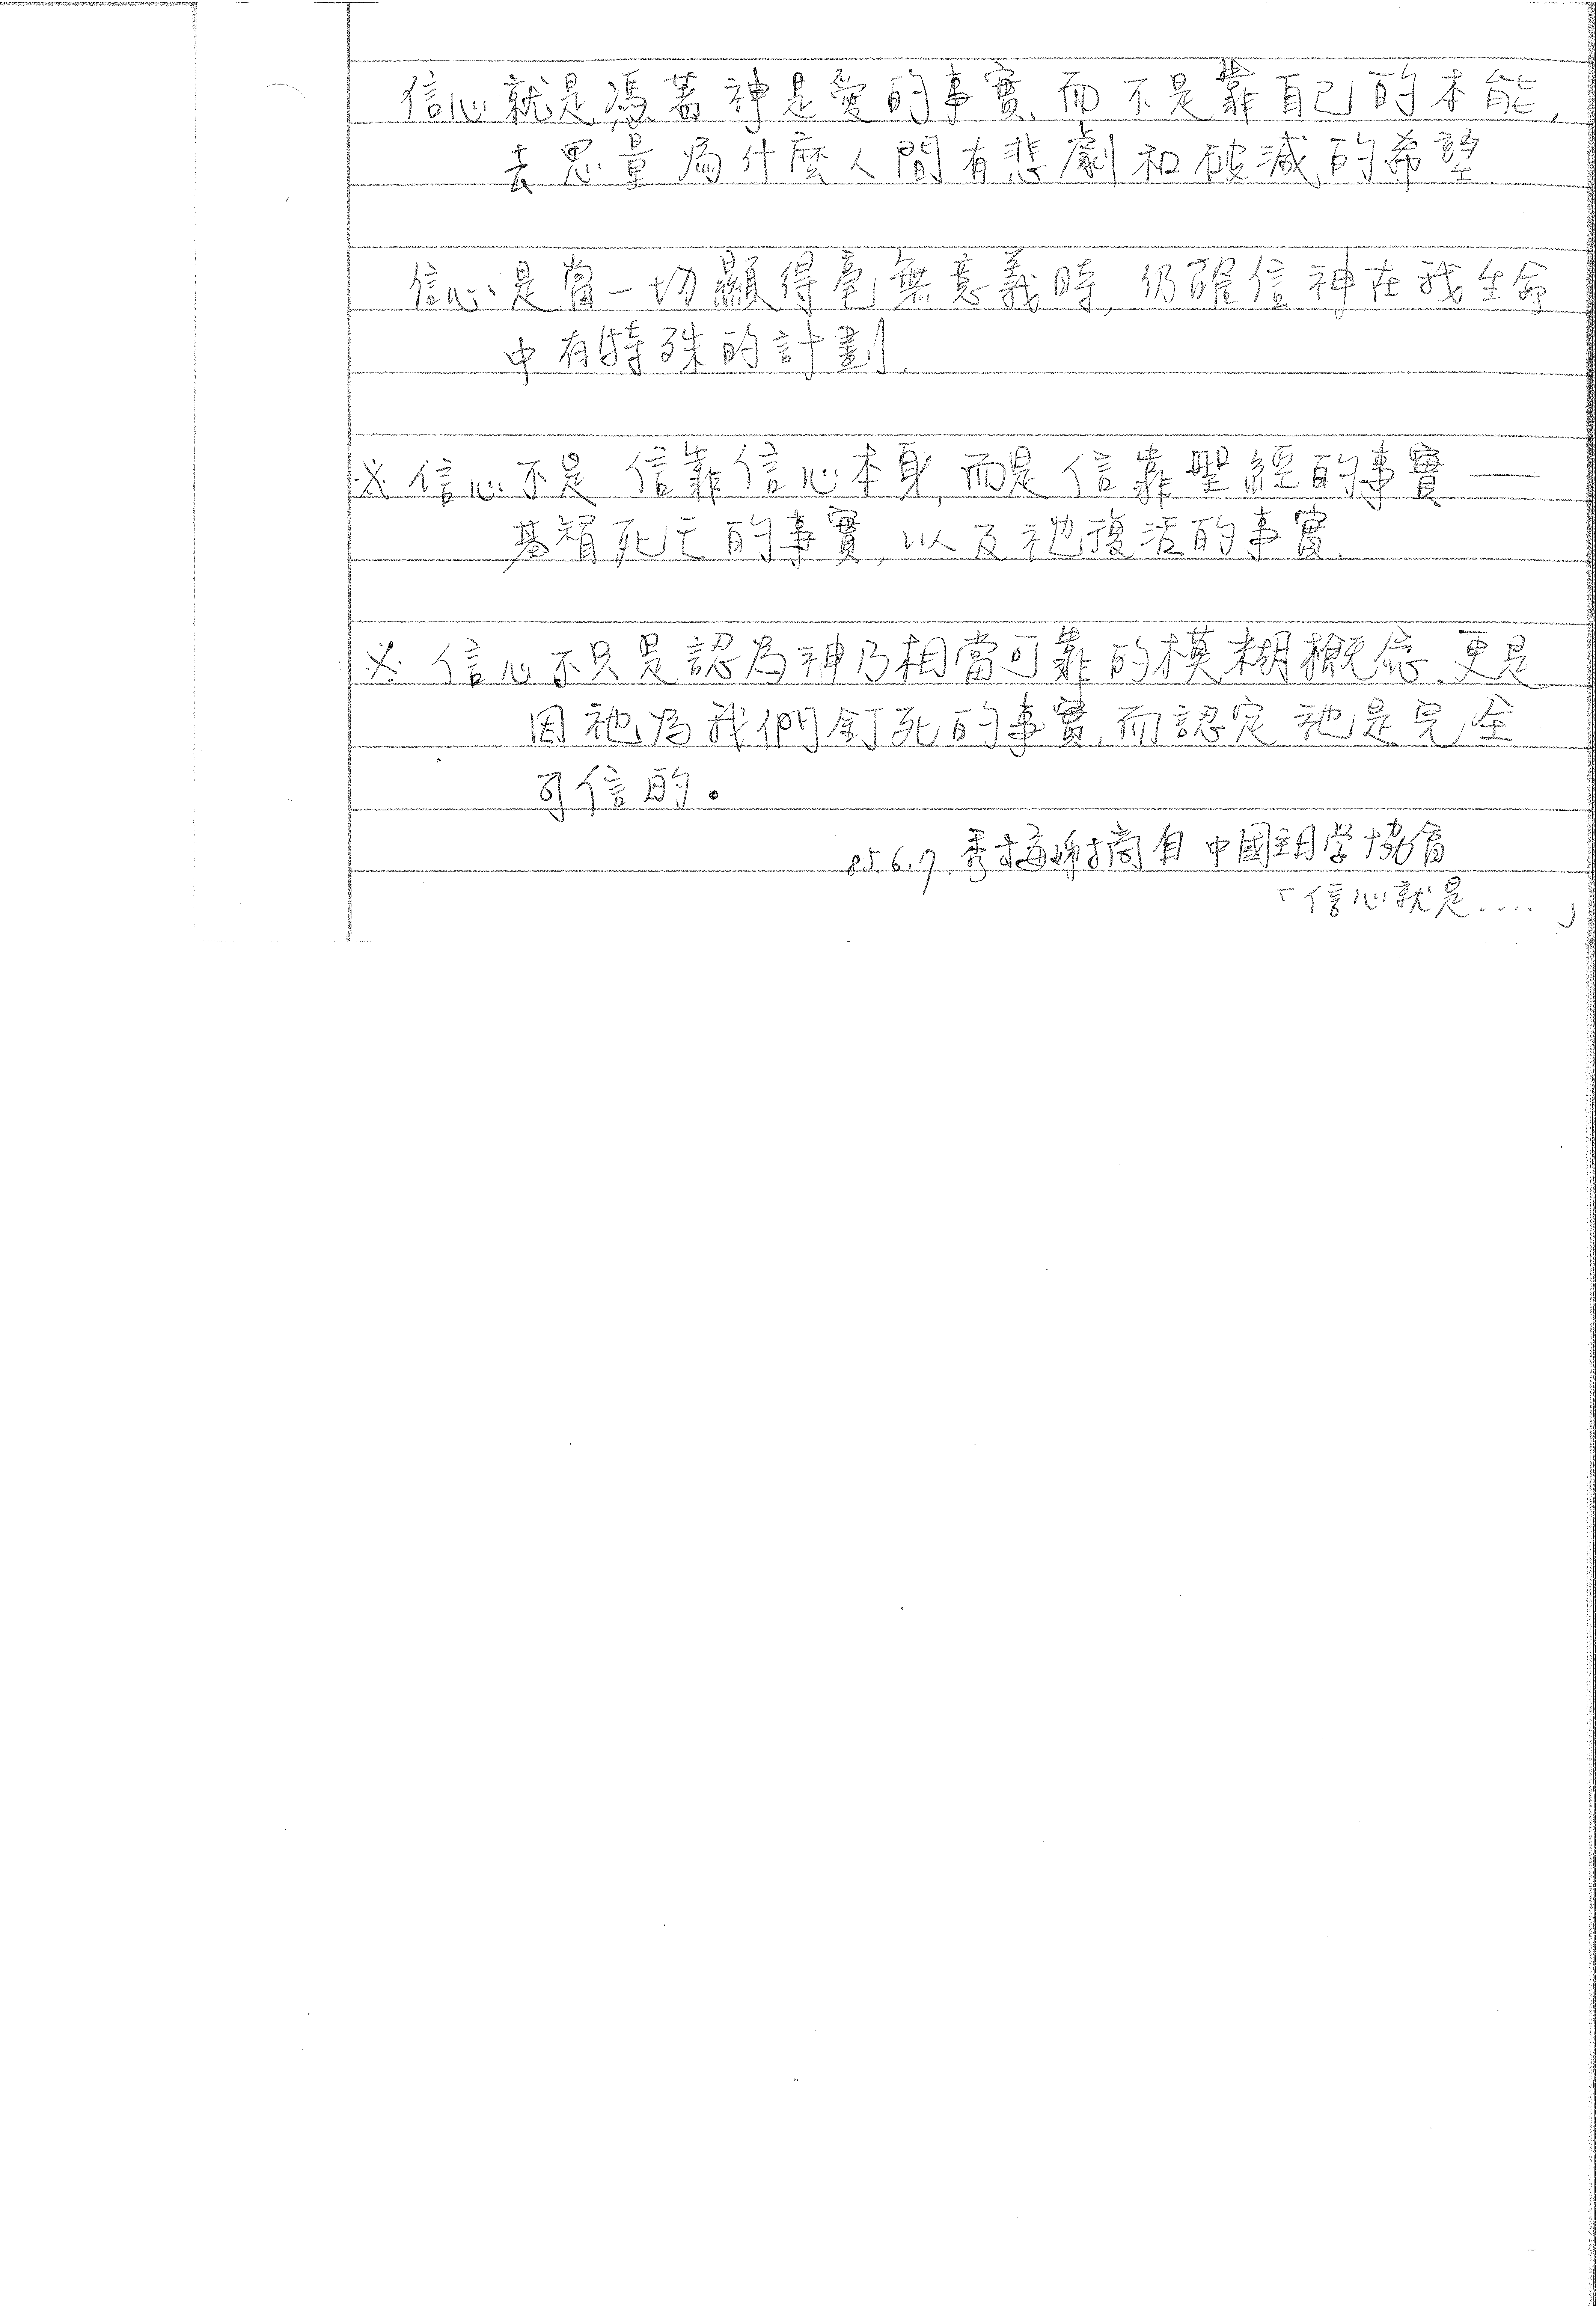 信心就是憑著神是愛的事實、而不是靠自己的本能,
去思量為什麼人間有悲劇和破滅的希望.
信心是當一切顯得毫無意義時,仍確信神在我生命
中有特殊的計劃.
※信心不是信靠信心本身,而是信靠聖經的事實—
基督死亡的事實,以及祂復活的事實.
※信心不只是認為神乃相當可靠的模糊概念.更是
因祂為我們釘死的事實,而認定祂是完全
可信的。
85.6.7.秀梅姊摘自中國主日学協會
「信心就是....」